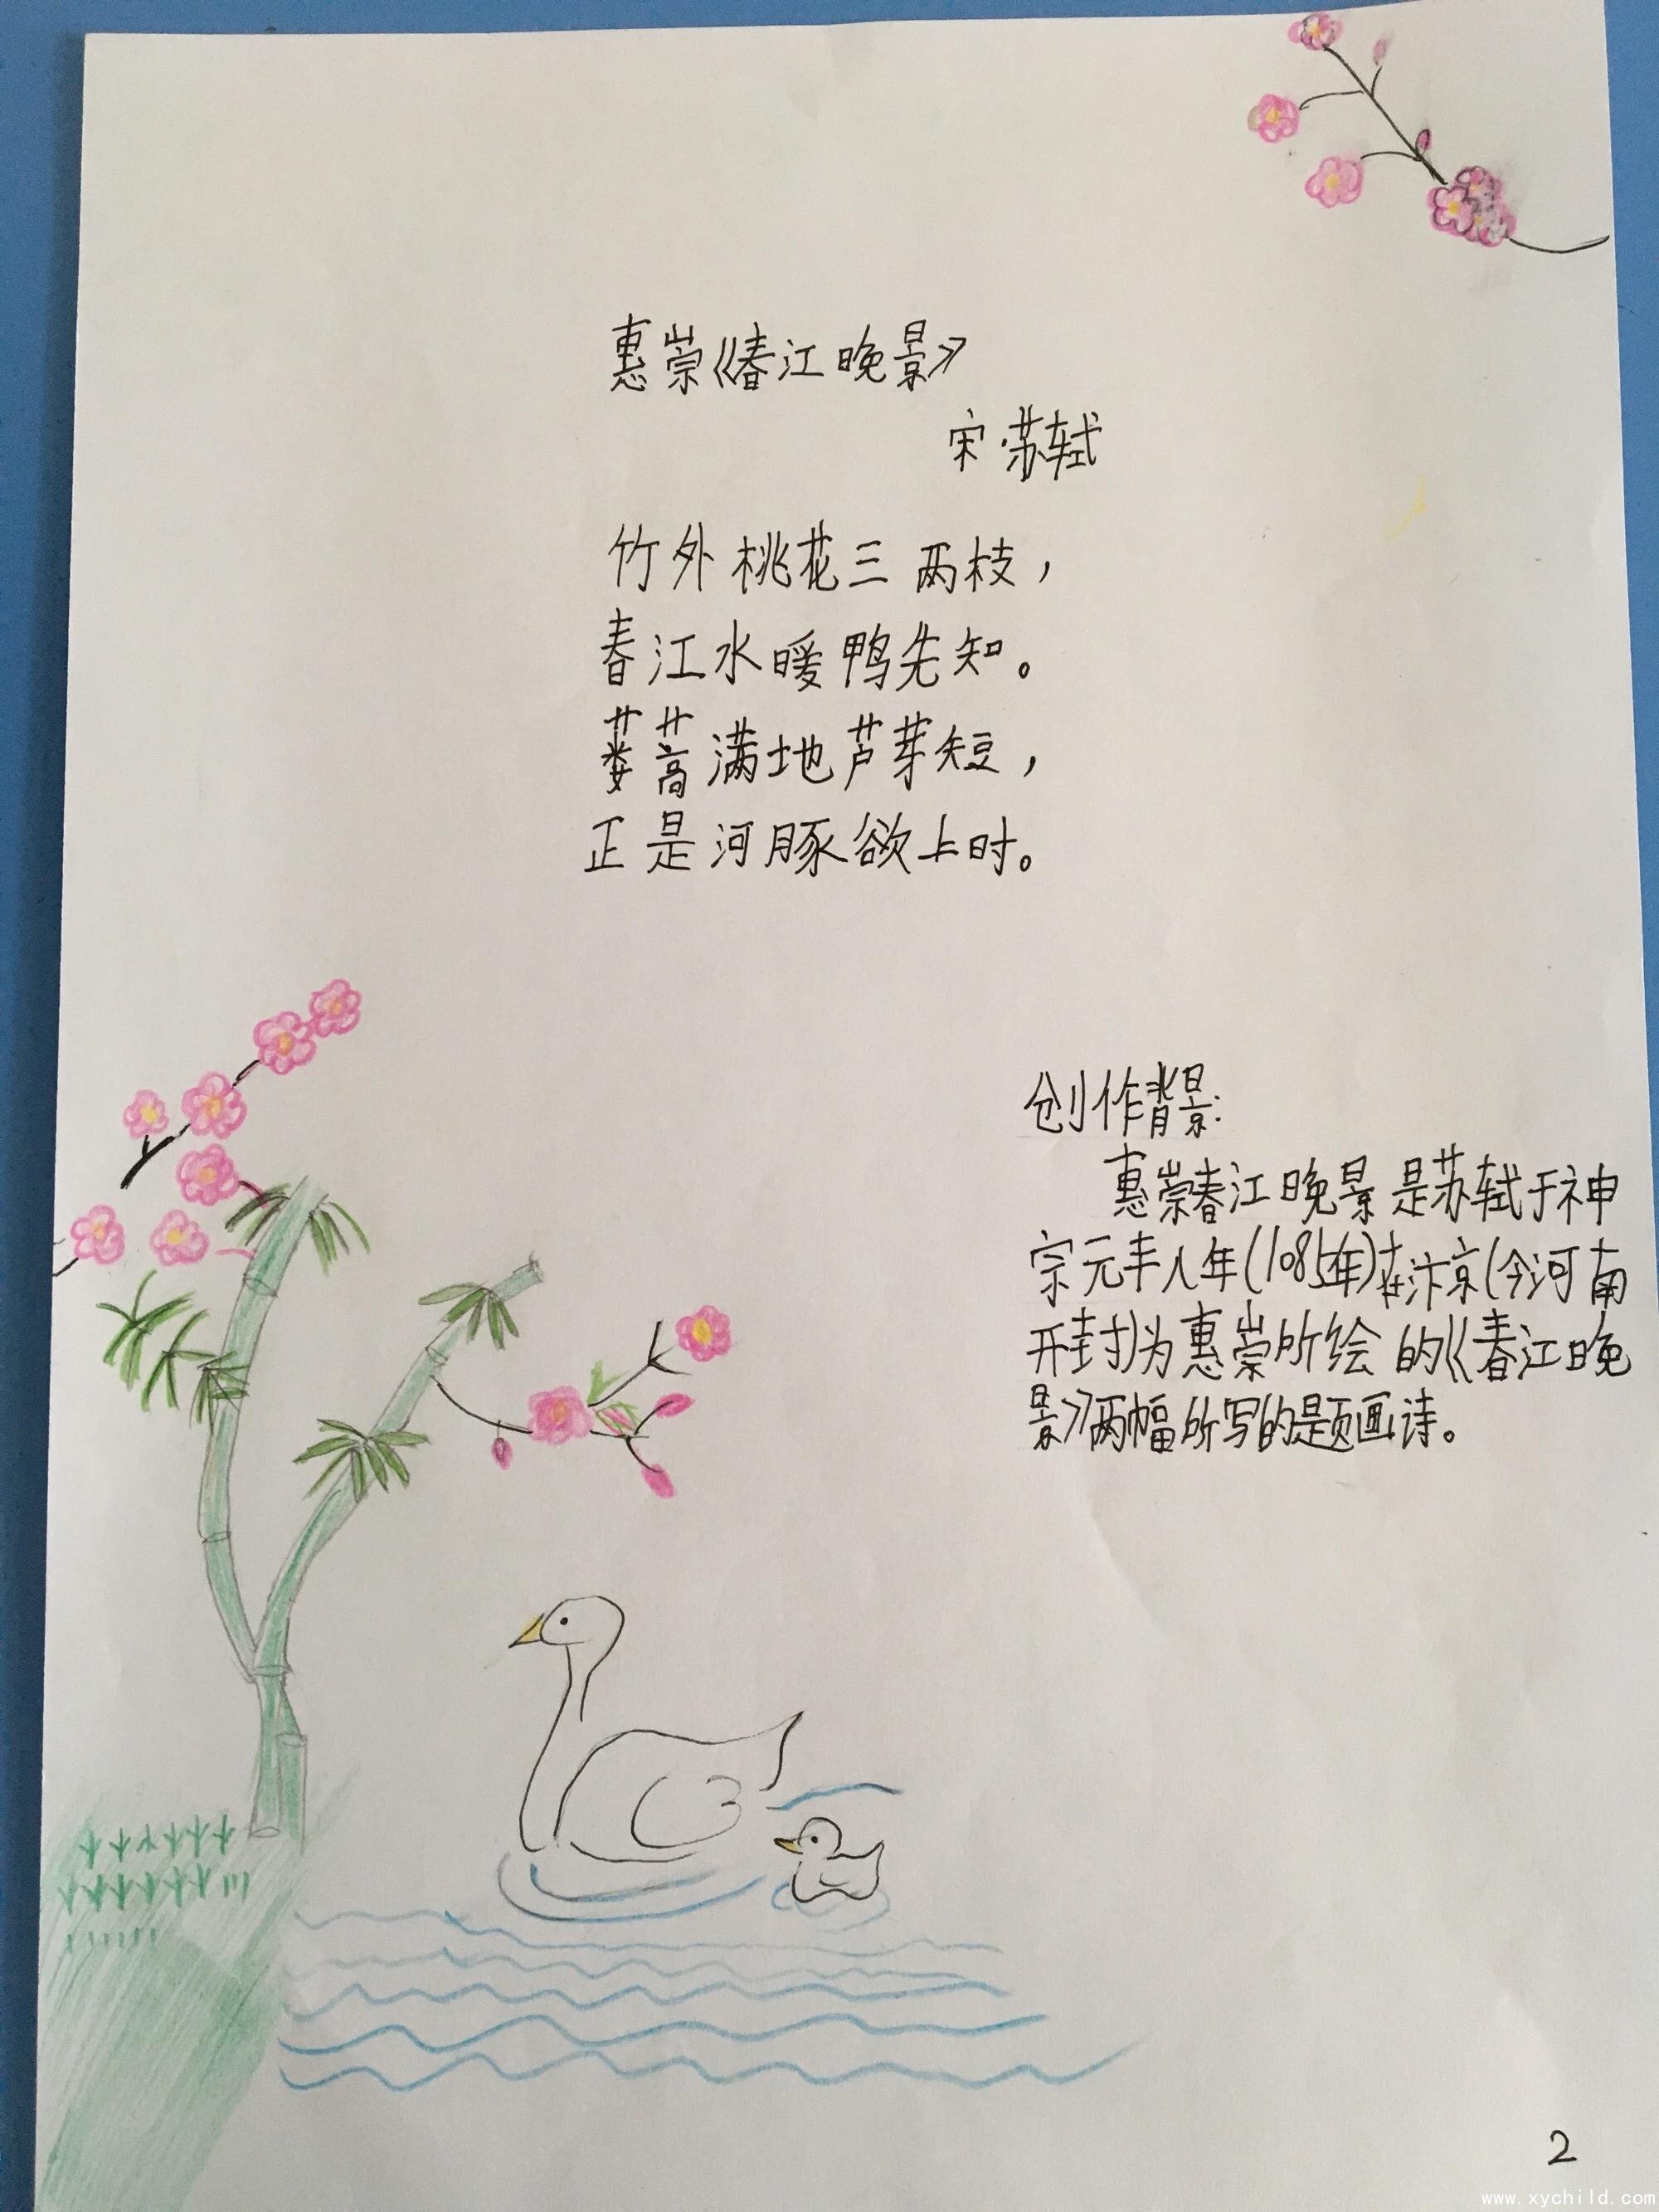 惠崇《春江晚景》
宋·苏轼
竹外桃花三两枝，
春江水暖鸭先知。
蒌蒿满地芦芽短，
正是河豚欲上时。
创作背景：
惠崇春江晚景是苏轼于神
宗元丰八年(1085年)在汴京(今河南
开封)为惠崇所绘的《春江晚
景》两幅所写的题画诗。
2
www.xychild.com